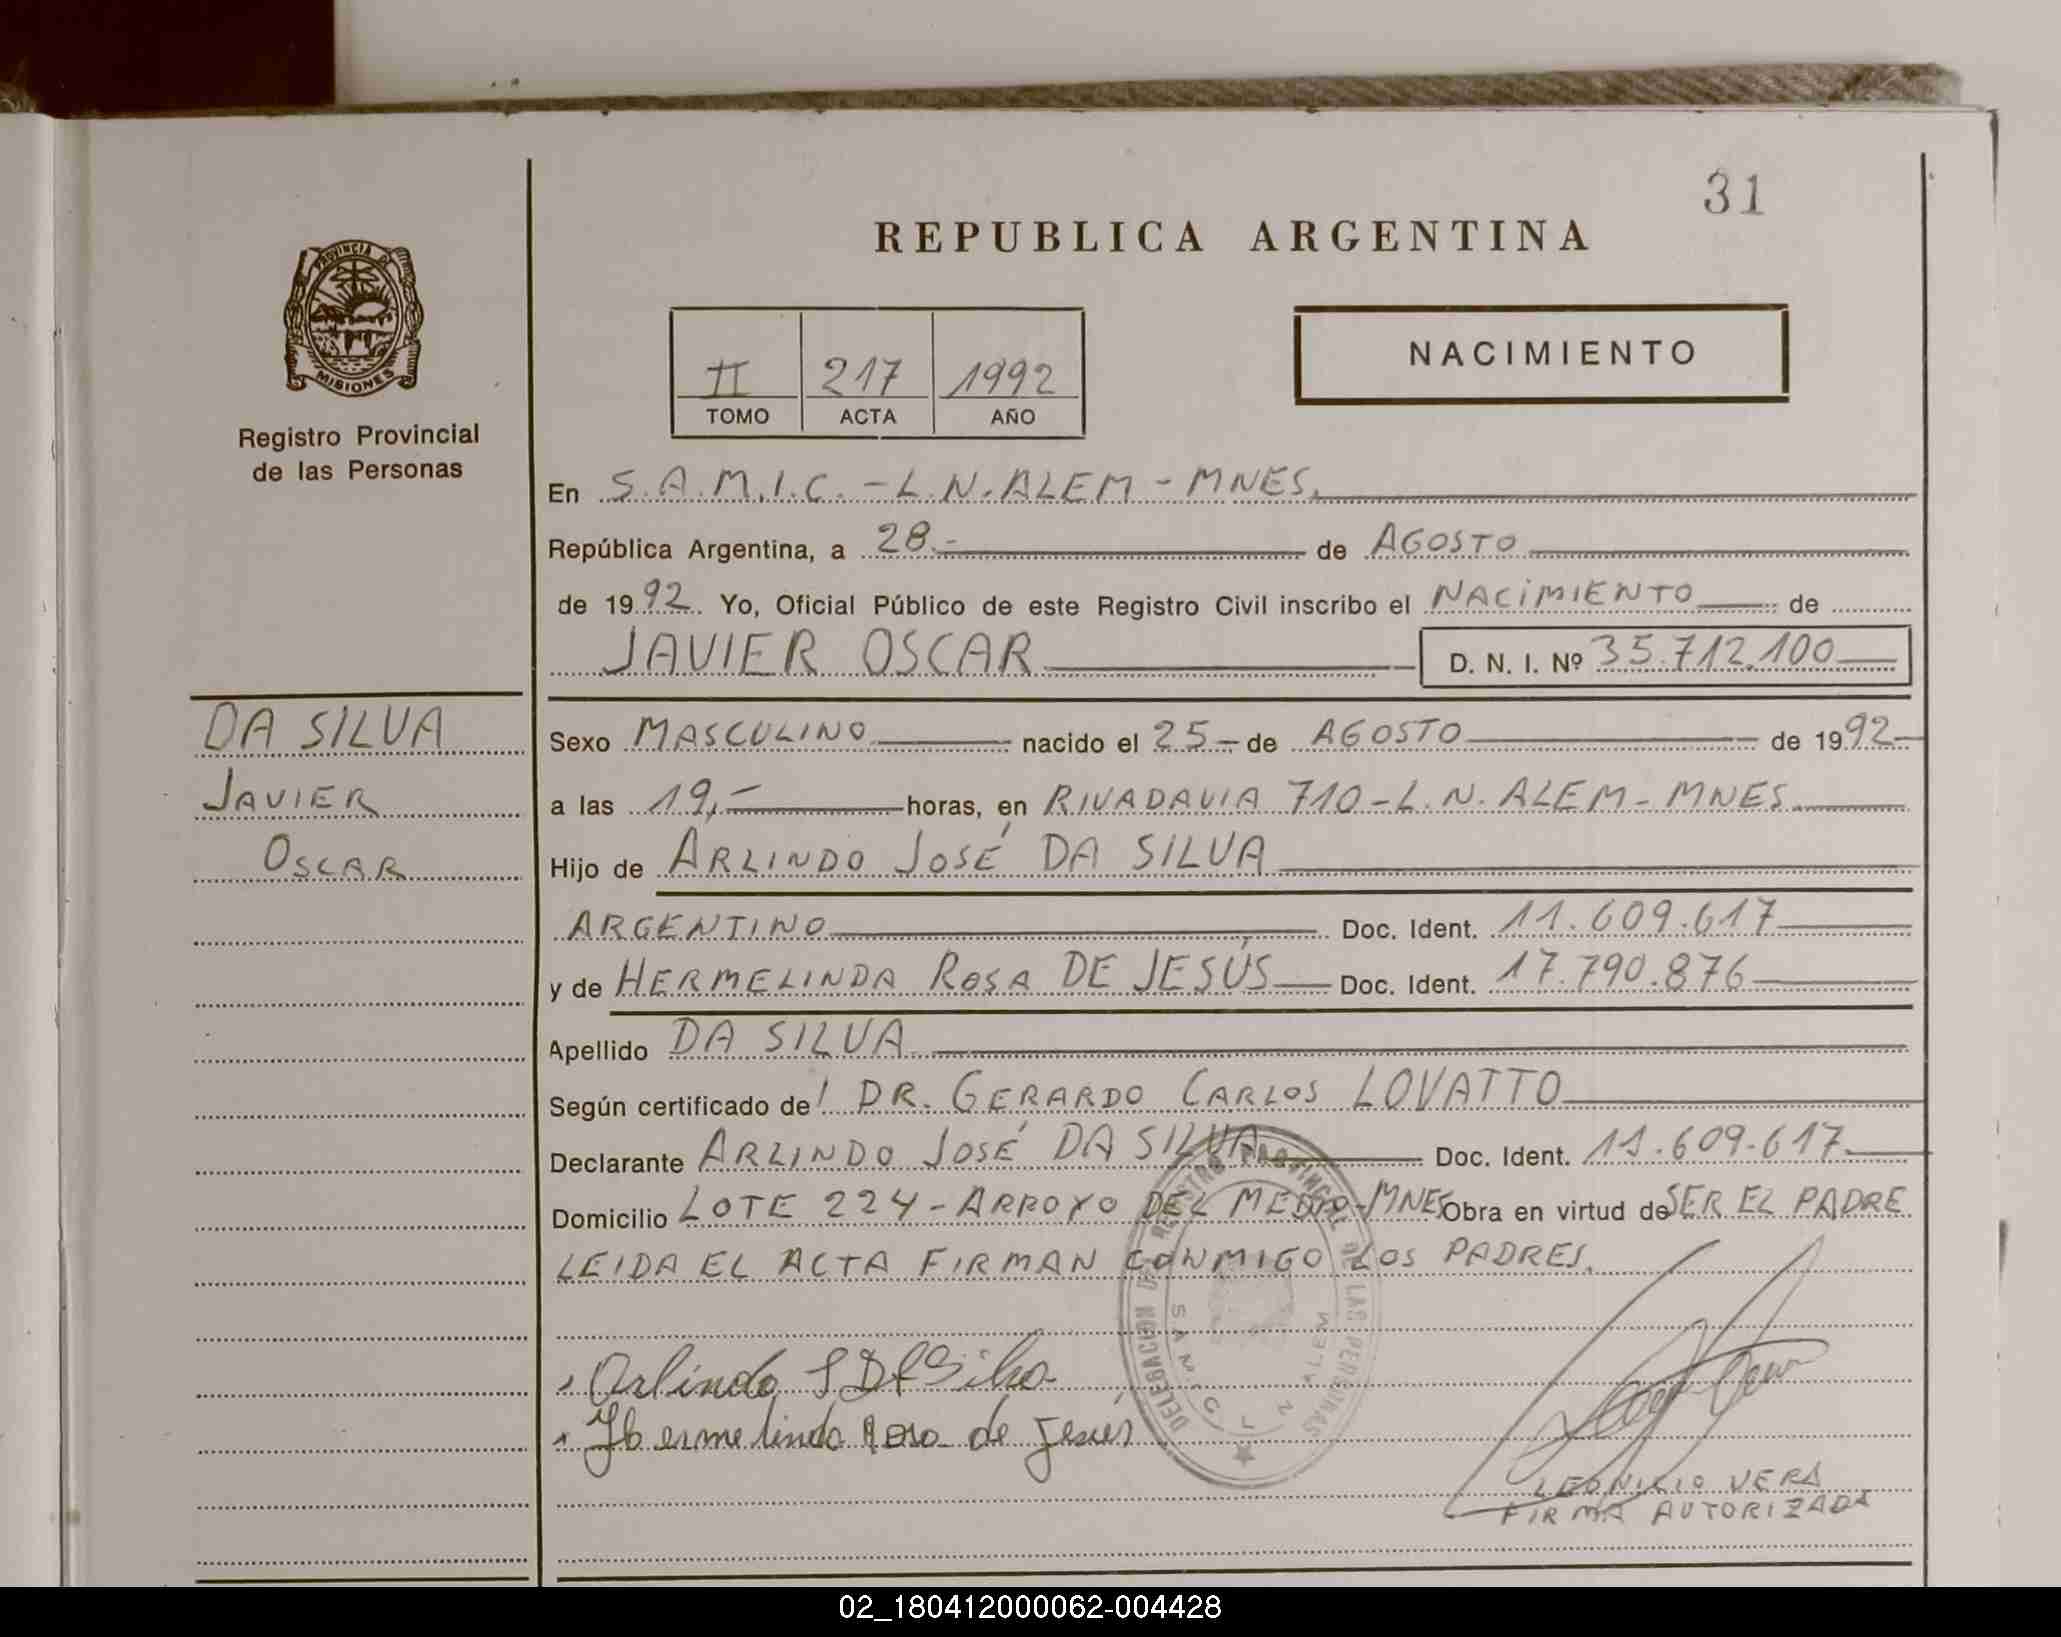 31
REPUBLICA ARGENTINA
PROVINCIA DE
MISIONES
Registro Provincial
de las Personas
II 217 1992
TOMO ACTA AÑO
NACIMIENTO
En S.A.M.I.C. - L.N. ALEM - MNES.
República Argentina, a 28.- de AGOSTO
de 1992. Yo, Oficial Público de este Registro Civil inscribo el NACIMIENTO de
JAVIER OSCAR D. N. I. Nº 35.712.100
DA SILVA
JAVIER
OSCAR
Sexo MASCULINO nacido el 25 - de AGOSTO de 1992
a las 19,- horas, en RIVADAVIA 710 - L.N. ALEM - MNES.
Hijo de ARLINDO JOSÉ DA SILVA
ARGENTINO Doc. Ident. 11.609.617
y de HERMELINDA ROSA DE JESÚS Doc. Ident. 17.790.876
Apellido DA SILVA
Según certificado de DR. GERARDO CARLOS LOVATTO
Declarante ARLINDO JOSÉ DA SILVA Doc. Ident. 11.609.617
Domicilio LOTE 224 - ARROYO DEL MEDIO - MNES Obra en virtud de SER EL PADRE
LEIDA EL ACTA FIRMAN CONMIGO LOS PADRES.
DELEGACION DEL REGISTRO PROVINCIAL DE LAS PERSONAS
L N ALEM
Arlindo J Da Silva
Hermelinda Rosa de Jesús
LEONICIO VERA
FIRMA AUTORIZADA
02_180412000062-004428